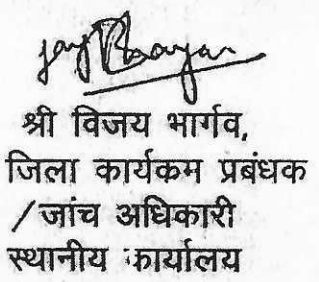 श्री विजय भार्गव,
जिला कार्यकम प्रबंधक
/जांच अधिकारी
स्थानीय कार्यालय